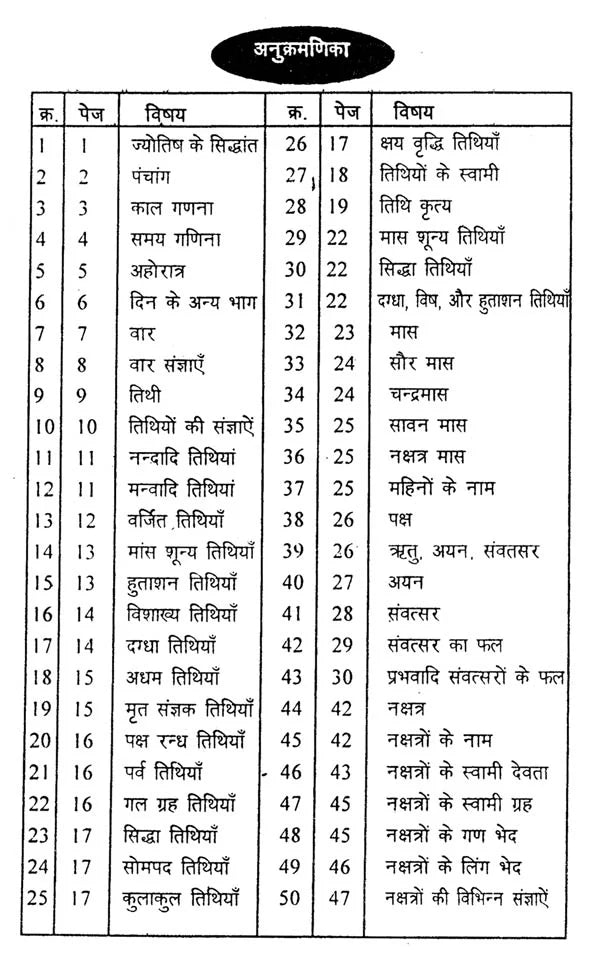 अनुक्रमणिका
क्र. पेज विषय क्र. पेज विषय
1 1 ज्योतिष के सिद्धांत 26 17 क्षय वृद्धि तिथियाँ
2 2 पंचांग 27 18 तिथियों के स्वामी
3 3 काल गणना 28 19 तिथि कृत्य
4 4 समय गणिना 29 22 मास शून्य तिथियाँ
5 5 अहोरात्र 30 22 सिद्धा तिथियाँ
6 6 दिन के अन्य भाग 31 22 दग्धा, विष, और हुताशन तिथियाँ
7 7 वार 32 23 मास
8 8 वार संज्ञाएँ 33 24 सौर मास
9 9 तिथी 34 24 चन्द्रमास
10 10 तिथियों की संज्ञाऐं 35 25 सावन मास
11 11 नन्दादि तिथियां 36 25 नक्षत्र मास
12 11 मन्वादि तिथियां 37 25 महिनों के नाम
13 12 वर्जित तिथियाँ 38 26 पक्ष
14 13 मांस शून्य तिथियाँ 39 26 ऋतु, अयन, संवतसर
15 13 हुताशन तिथियाँ 40 27 अयन
16 14 विशाख्य तिथियाँ 41 28 संवत्सर
17 14 दग्धा तिथियाँ 42 29 संवत्सर का फल
18 15 अधम तिथियाँ 43 30 प्रभवादि संवत्सरों के फल
19 15 मृत संज्ञक तिथियाँ 44 42 नक्षत्र
20 16 पक्ष रन्ध तिथियाँ 45 42 नक्षत्रों के नाम
21 16 पर्व तिथियाँ 46 43 नक्षत्रों के स्वामी देवता
22 16 गल ग्रह तिथियाँ 47 45 नक्षत्रों के स्वामी ग्रह
23 17 सिद्धा तिथियाँ 48 45 नक्षत्रों के गण भेद
24 17 सोमपद तिथियाँ 49 46 नक्षत्रों के लिंग भेद
25 17 कुलाकुल तिथियाँ 50 47 नक्षत्रों की विभिन्न संज्ञाऐं